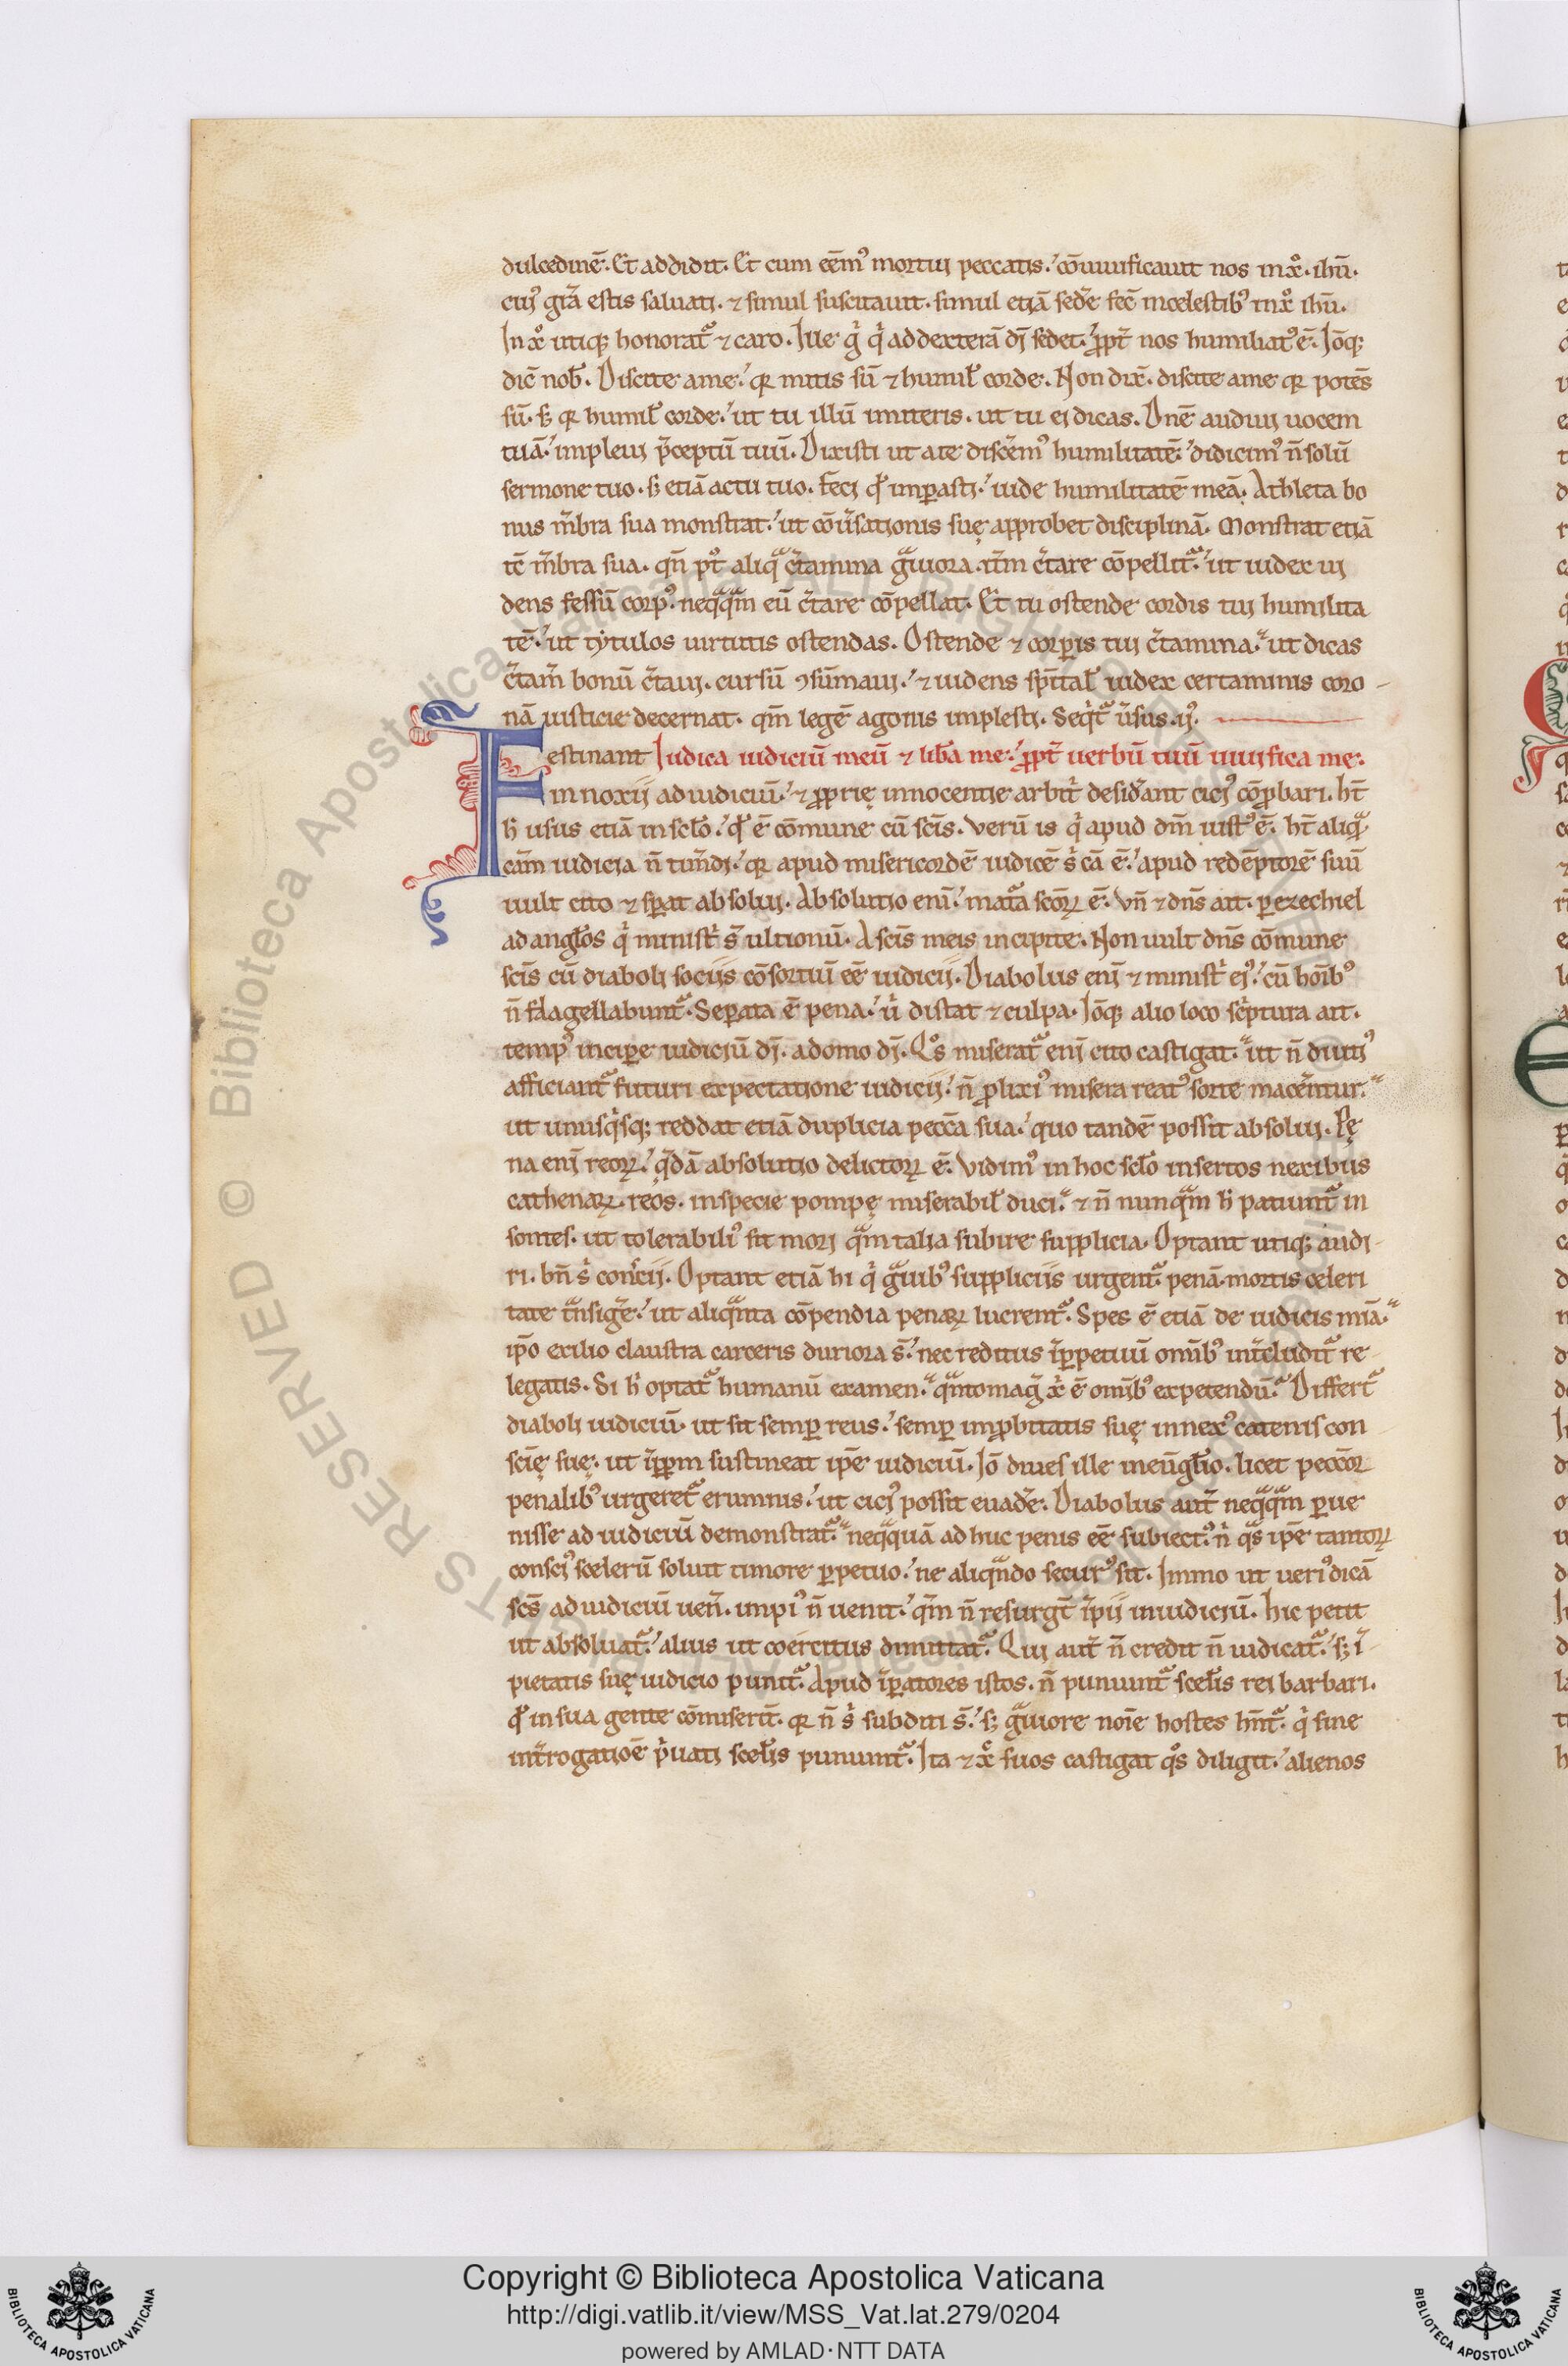 dulcedinē. Et addidit. Et cum eēm᷒ mortui peccatis. cōuiuificauit nos in xp̄o. ihū.
cui᷒ grā estis saluati. ⁊ simul suscitauit. simul etiā sedēr fec̄ in celestib᷒ in xp̄o ihū.
In xp̄o utiq; honorat᷑ ⁊ caro. Ille ḡ q̇ ad dexterā dī sedet. ꝓpt̄ nos humiliat᷒ ē. Iōq;
dic̄ nob̄. Discite a me. qr mitis sū ⁊ humil̄ corde. Non dix̄. discite a me qr potēs
sū. s; qr humil̄ corde. ut tu illū imiteris. ut tu ei dicas. Dn̄e audiui uocem
tuā. impleui p̄ceptū tuū. Dixisti ut a te discēm᷒ humilitatē. didicim᷒ n̄ solū
sermone tuo. s; etiā actu tuo. feci qd̄ imꝑasti. uide humilitatē meā. Athleta bo
nus m̄bra sua monstrat. ut cōūsationis suę approbet disciplinā. Monstrat etiā
tē m̄bra sua. qn̄ pt᷒ aliq̄ c̄tamina ḡuiora. it̄m c̄tare cōpellit᷑. ut iudex ui
dens fessū corp᷒. neq̄q̄m eū c̄tare cōpellat. Et tu ostende cordis tui humilita
tē. ut tẏtulos uirtutis ostendas. Ostende ⁊ corꝑis tui c̄tamina. ut dicas
c̄tam̄ bonū c̄taui. cursū ꝯsūmaui. ⁊ uidens sp̄ital̄ iudex certaminis coro-
nā iusticie decernat. qm̄ legē agonis implesti. Seq̇t᷑ u̇sus. ij᷒.
Festinant Iudica iudiciū meū ⁊ lib̄a me. ꝓpt̄ uerbū tuū uiuifica me.
innoxij ad iudiciū. ⁊ ꝓprię innocentie arbit̄ desid̄ant cici᷒ cōꝓbari. ht̄
h̄ usus etiā in scl̄o. qd̄ ē cōmune cū scīs. Verū is q̇ apud dm̄ iust᷒ ē. ht̄ aliq̄
cām iudicia n̄ tim̄di. qr apud misericordē iudicē s̄ cā ē. apud redēptorē suū
uult cito ⁊ sꝑat absolui. Absolutio enī. mat᷑a scōꝝ ē. Vn̄ ⁊ dn̄s ait. ꝑ ezechiel
ad angl̄os q̇ minist̄ s̄ ultionū. A scīs meis incipite. Non uult dn̄s cōmune
scīs cū diaboli sociis cōsortiū eē iudicij. Diabolus enī ⁊ minist̄ ei᷒. cū hoīb᷒
n̄ flagellabunt᷑. Seꝑata ē pena. u̇ distat ⁊ culpa. Iōq; alio loco sc̄ptura ait.
temp᷒ inciꝑe iudiciū dī. a domo dī. Qo̊s miserat᷑ enī cito castigat. ut n̄ diuti᷒
afficiant᷑ futuri expectatione iudicij. n̄ ꝓlixi᷒ misera reat᷒ sorte mac̄entur.
ut unusq̇sq; reddat etiā duplicia pecc̄a sua. quo tandē possit absolui. Pę
na enī reoꝝ. q̄dā absolutio delictoꝝ ē. Vidim᷒ in hoc scl̄o insertos nexibus
cathenaꝝ. reos. in specie pompę miserabil̄ duci. ⁊ n̄ nunq̄m h̄ patiunt᷑ in
sontes. ut tolerabili᷒ sit mori q̄m talia subire supplicia. Optant utiq; audi-
ri. bn̄ s̄ conc̄ij. Optant etiā hi q̇ ḡuib᷒ suppliciis urgent᷑. penā mortis celeri
tate t̄nsig̃e. ut aliq̄nta cōpendia penaꝝ lucrent᷑. Spes ē etiā de iudicis mīa.
ip̄o exilio claustra carceris duriora s̄. nec reditus īꝑpetuū omīb᷒ int̄cludit᷑ re
legatis. Si h̄ optat᷑ humanū examen. q̄nto mag̃ x̄ ē omīb᷒ expetendū. Differt᷑
diaboli iudiciū. ut sit semꝑ reus. semꝑ imꝓbitatis suę innex᷒ catenis con
scīę suę. ut īꝑpm sustineat ip̄e iudiciū. Iō diues ille in eūgl̄io. licet pecc̄or
penalib᷒ urgeret᷑ erumnis. ut cici᷒ possit euad̄e. Diabolus aut̄ neq̄q̄m ꝑue
nisse ad iudiciū demonstrat᷑. neq̄quā ad huc penis eē subiect᷒. n̄ q̄s ip̄e tantoꝝ
consci᷒ scelerū soluit timore ꝑpetuo. ne aliq̄ndo secur᷒ sit. Immo ut ueri᷒ dicā
scs̄ ad iudiciū uen̄. impi᷒ n̄ uenit. qm̄ n̄ resurg̃t īpij in iudiciū. hic petit
ut absoluat᷑. alius ut coercitus dimittat᷑. Qui aut̄ n̄ credit n̄ iudicat᷑. s; ī-
pietatis suę iudicio punit᷑. Apud īꝑatores istos. n̄ puniunt᷑ scel̄is rei barbari.
qd̄ in sua gente cōmiserīt. qr n̄ s̄ subditi s̄. s; ḡuiore noīe hostes hn̄t᷑. q̇ sine
int̄rogatiōe p̄uati scel̄is puniunt᷑. Ita ⁊ xp̄o suos castigat qo̊s diligit. alienos
Copyright © Biblioteca Apostolica Vaticana
http://digi.vatlib.it/view/MSS_Vat.lat.279/0204
powered by AMLAD·NTT DATA